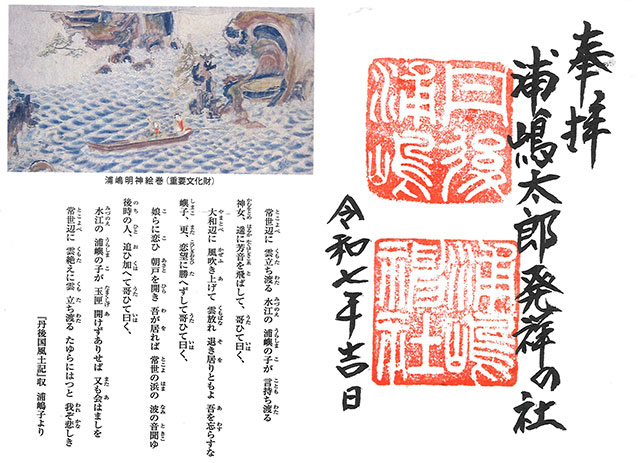 奉拝
浦嶋太郎発祥の社
丹後浦嶋
浦嶋神社
令和七年吉日
浦嶋明神絵巻(重要文化財)
常世辺に 雲立ち渡る 水江の 浦嶼の子が 言持ち渡る
神女、遥に芳音を飛ばして、哥ひて曰く、
大和辺に 風吹き上げて 雲放れ 退き居りともよ 吾を忘らすな
嶼子、更、恋望に勝へずして哥ひて曰く、
娘らに恋ひ 朝戸を開き 吾が居れば 常世の浜の 波の音聞ゆ
後時の人、追ひ加へて哥ひて曰く、
水江の 浦嶼の子が 玉匣 開けずありせば 又も会はましを
常世辺に 雲絶えに雲 立ち渡る たゆらにはつと 我ぞ悲しき
『丹後国風土記』収 浦嶋子より